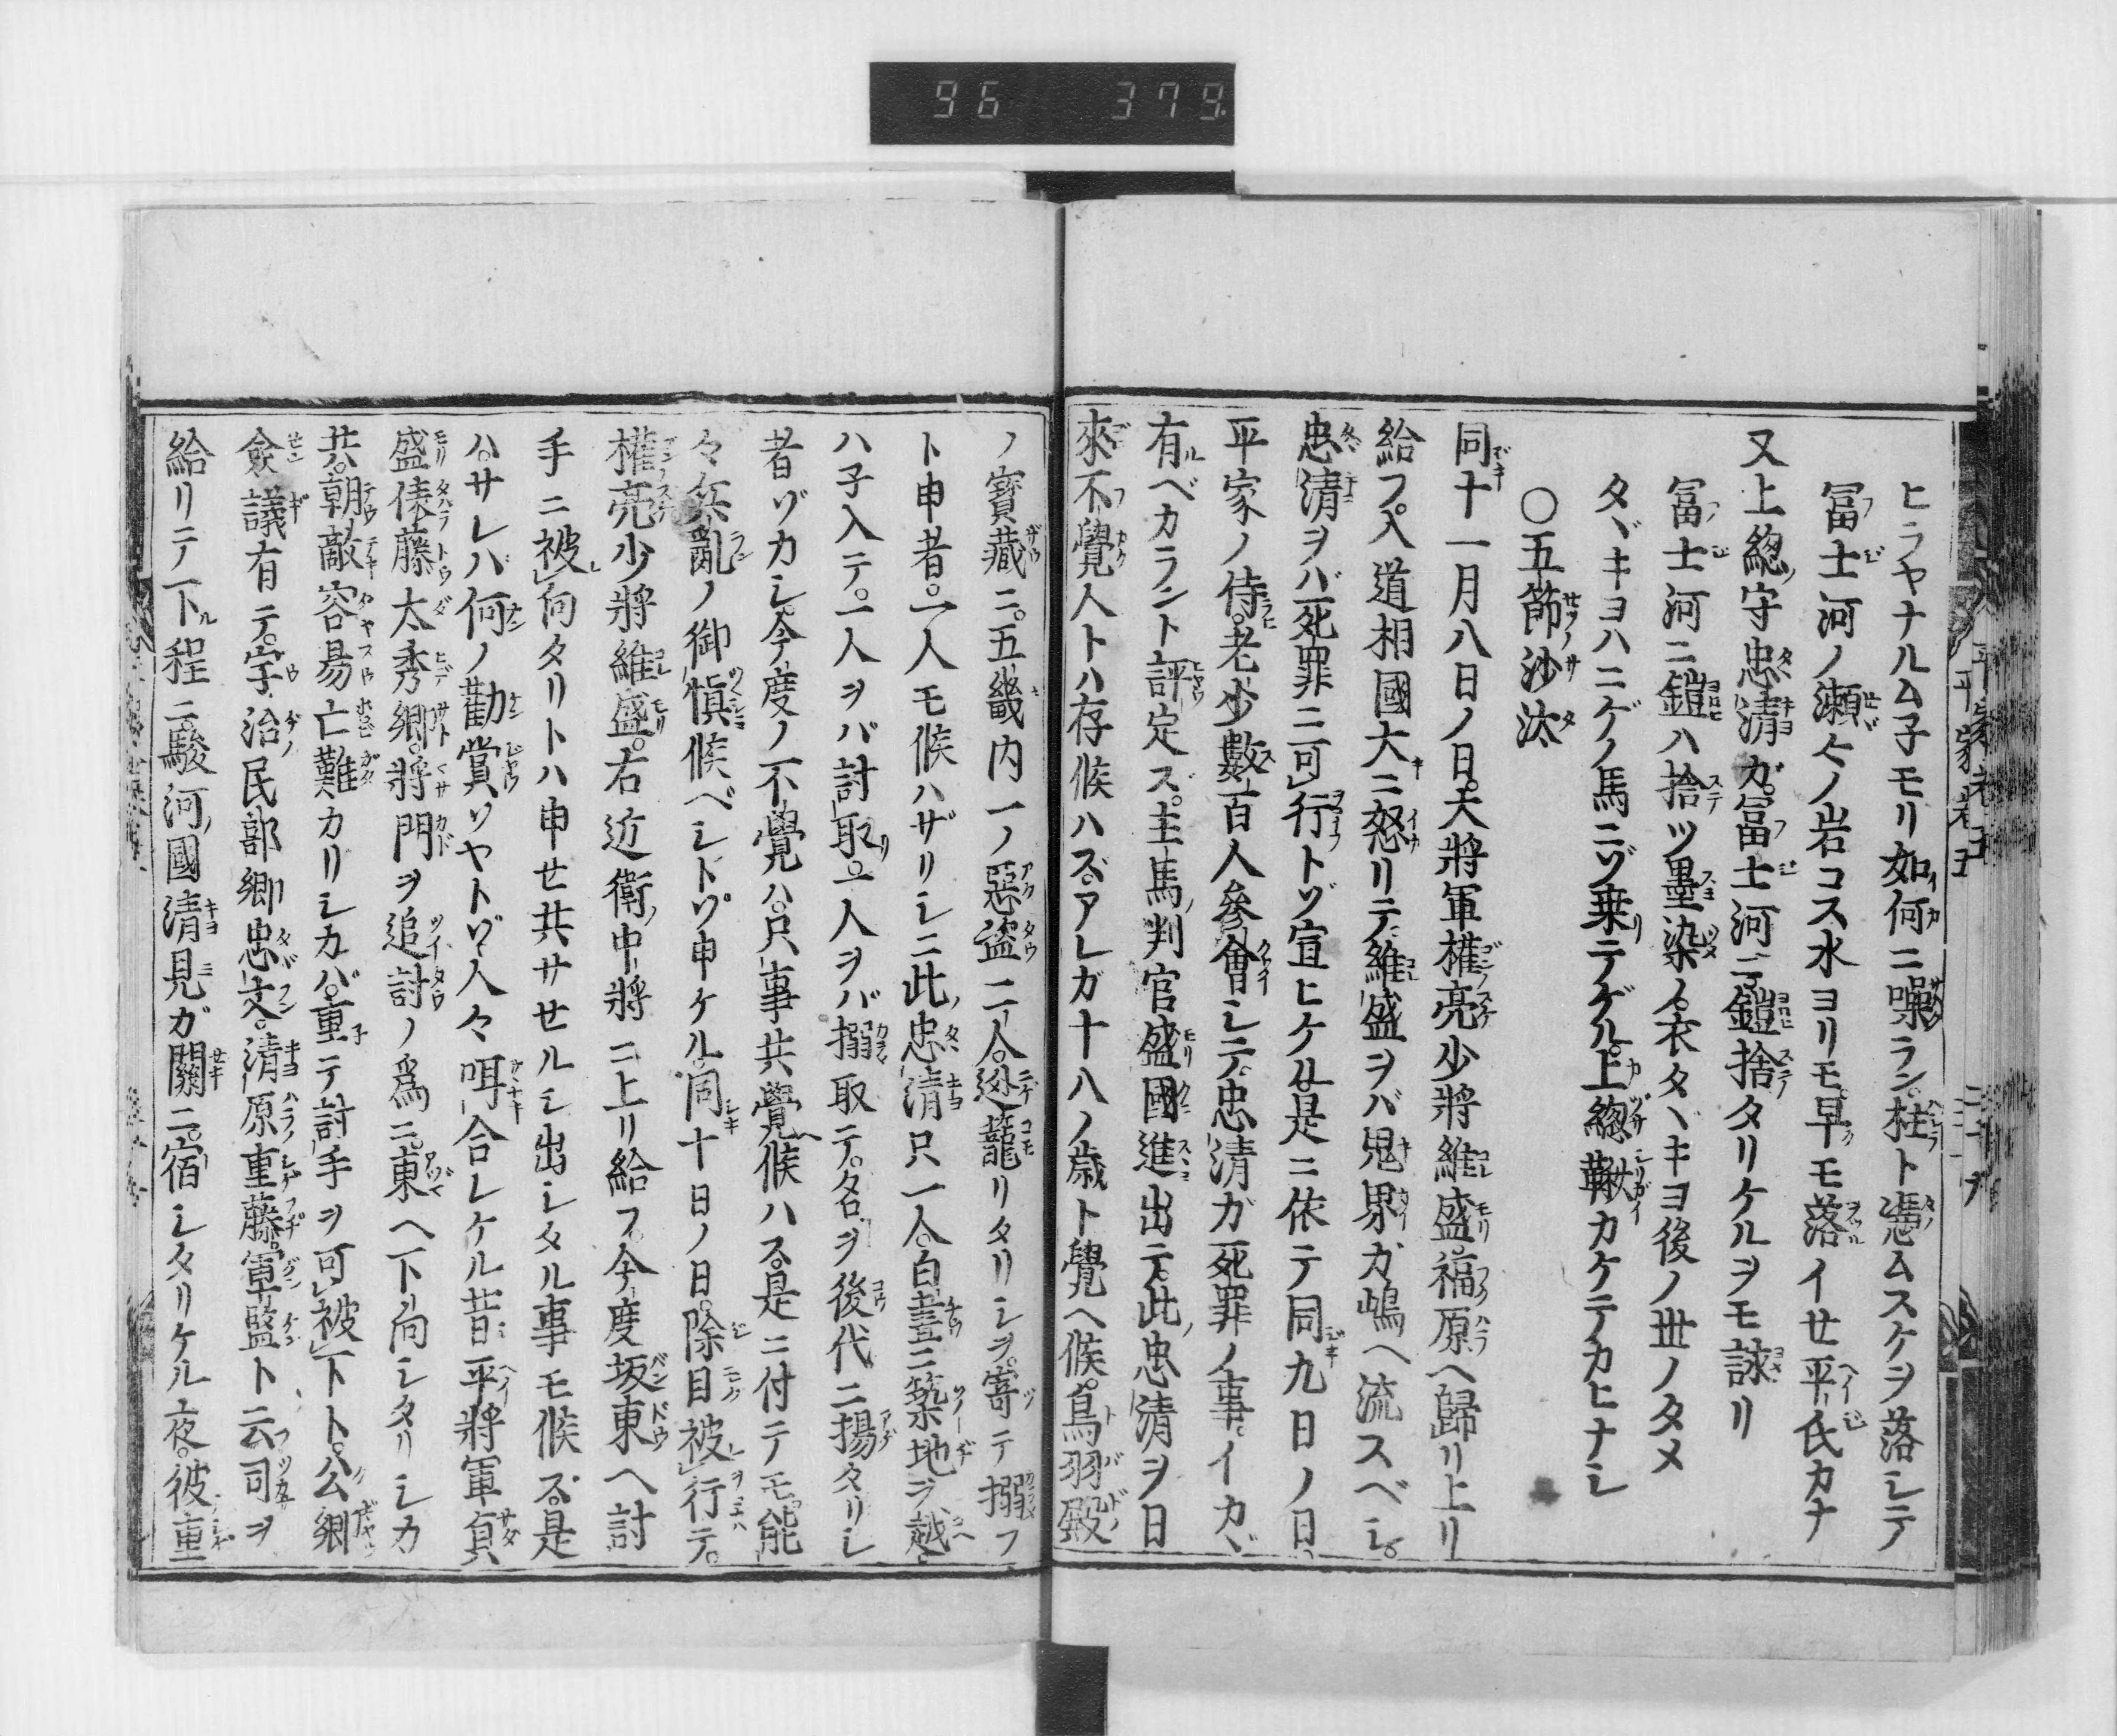 96 379.
ヒラヤナルムネモリ如何ニ噪ラン。柱ト憑ムスケヲ落シテ
冨士河ノ瀬々ノ岩コス水ヨリモ。早モ落イセ平氏カナ
又上総守忠清ガ。冨士河ニ鎧捨タリケルヲモ詠リ
冨士河ニ鎧ハ捨ツ墨染ノ。衣タヾキヨ後ノ世ノタメ
タヾキヨハニゲノ馬ニゾ乗テゲル。上総鞦カケテカヒナシ
〇五節沙汰
同十一月八日ノ日。大將軍權亮少將維盛福原ヘ歸リ上リ
給フ。入道相國大ニ怒リテ。維盛ヲバ鬼界ガ嶋ヘ流スベシ。
忠清ヲバ死罪ニ可行トゾ宣ヒケル。是ニ依テ同九日ノ日。
平家ノ侍。老少數百人參會シテ。忠清ガ死罪ノ事。イカヾ
有ベカラント評定ス。主馬判官盛國進出テ。此忠清ヲ日
來不覺人トハ存候ハズ。アレガ十八ノ歳ト覺ヘ候。鳥羽殿
ノ寳藏ニ。五畿内一ノ惡盗二人。迯籠リタリシヲ。寄テ搦フ
ト申者。一人モ候ハザリシニ此忠清只一人。白晝ニ築地ヲ越
ハネ入テ。一人ヲバ討取。一人ヲバ搦取テ。名ヲ後代ニ揚タリシ
者ゾカシ。今度ノ不覺ハ。只事共覺候ハス。是ニ付テモ。能
々兵亂ノ御愼候ベシトゾ申ケル。同十日ノ日。除目被行テ。
權亮少將維盛。右近衛中將ニ上リ給フ。今度坂東ヘ討
手ニ被向タリトハ申セ共サセルシ出シタル事モ候ズ。是
ハ。サレバ何ノ勸賞ソヤトゾ。人々咡合レケル昔平將軍貞
盛俵藤太秀郷。將門ヲ追討ノ爲ニ。東ヘ下向シタリシカ
共。朝敵容昜亡難カリシカバ。重テ討手ヲ可被下ト。公卿
僉議有テ。宇治民部卿忠文。清原重藤。軍監ト云司ヲ
給リテ下程ニ駿河國清見ガ關ニ。宿シタリケル夜。彼重